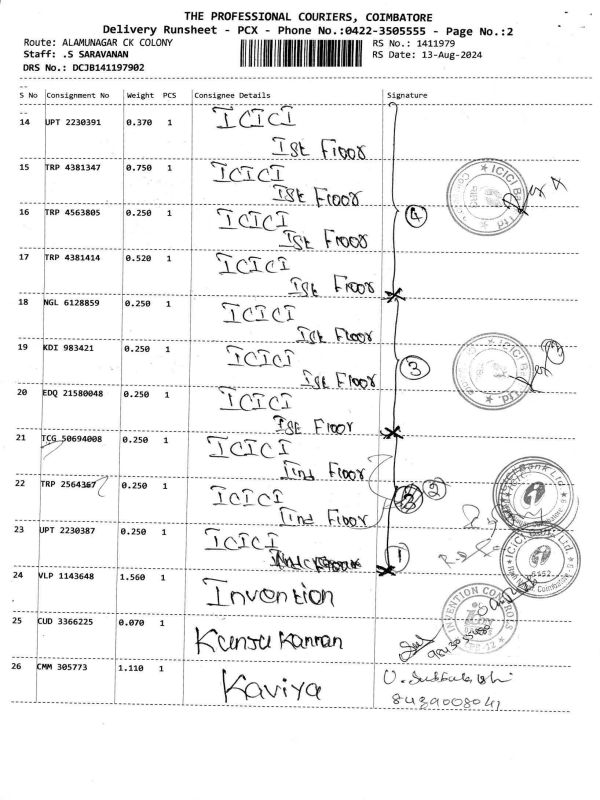 THE PROFESSIONAL COURIERS, COIMBATORE
Delivery Runsheet - PCX - Phone No.:0422-3505555 - Page No.:2
Route: ALAMUNAGAR CK COLONY RS No.: 1411979
Staff: .S SARAVANAN RS Date: 13-Aug-2024
DRS No.: DCJB141197902
S No Consignment No Weight PCS Consignee Details Signature
14 UPT 2230391 0.370 1 ICICI
Ist Floor
15 TRP 4381347 0.750 1 ICICI
Ist Floor
16 TRP 4563805 0.250 1 ICICI 4
Ist Floor
17 TRP 4381414 0.520 1 ICICI
Ist Floor
18 NGL 6128859 0.250 1 ICICI
Ist Floor
19 KDI 983421 0.250 1 ICICI 3
Ist Floor
20 EDQ 21580048 0.250 1 ICICI
Ist Floor
21 TCG 50694008 0.250 1 ICICI
IInd Floor
22 TRP 2564367 0.250 1 ICICI 2
IInd Floor
23 UPT 2230387 0.250 1 ICICI 1
24 VLP 1143648 1.560 1 Invention
INVENTION CONTROLS
25 CUD 3366225 0.070 1 Kunju Kannan
26 CMM 305773 1.110 1 Kaviya
8439008041